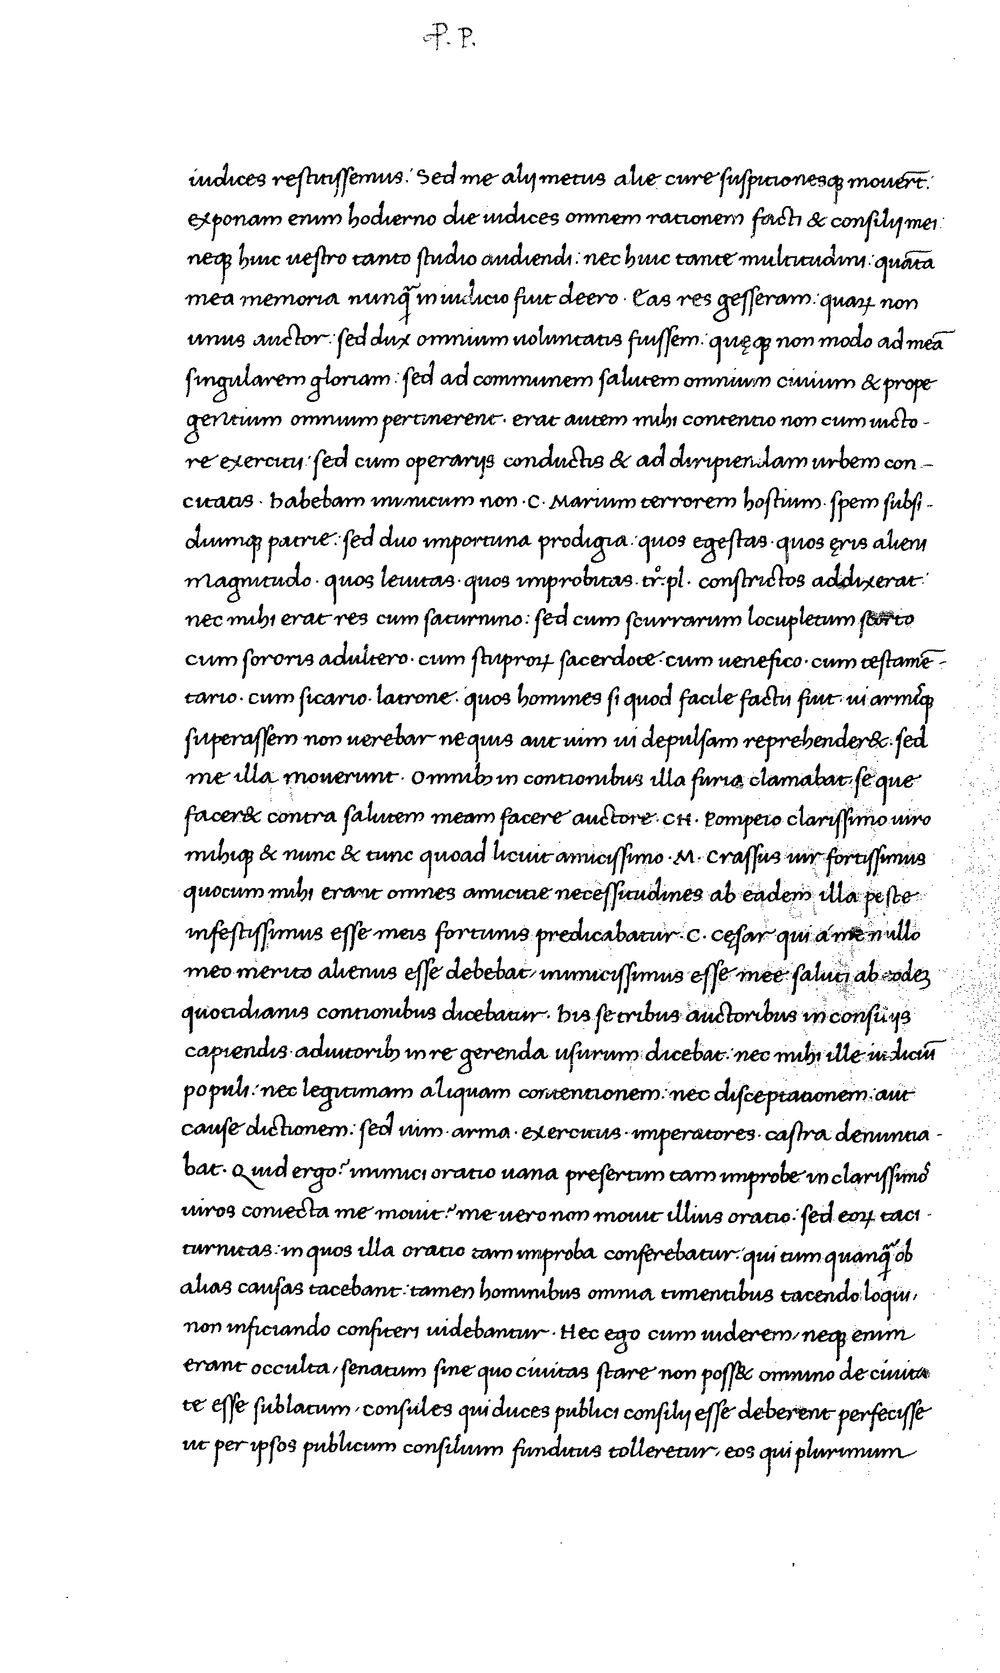 P. P.
iudices restitissemus: Sed me alij metus alie cure suspitionesqꝫ mouer̄t:
exponam enim hodierno die iudices omnem rationem facti & consilij mei:
neqꝫ huic uestro tanto studio audiendi: nec huic tante multitudini: quāta
mea memoria nunq̄ in iudicio fuit deero · Eas res gesseram: quaꝝ non
unus auctor: sed dux omnium uoluntatis fuissem: quęqꝫ non modo ad meā
singularem gloriam: sed ad communem salutem omnium ciuium & prope
gentium omnium pertinerent · erat autem mihi contentio non cum uicto-
re exercitu: sed cum operarijs conductis & ad diripiendam urbem con-
citatis · habebam inimicum non · C · Marium terrorem hostium · spem subsi-
diumqꝫ patrie: sed duo importuna prodigia: quos egestas · quos ęris alieni
magnitudo · quos leuitas · quos improbitas · tr̊ · pl · constrictos addixerat:
nec mihi erat res cum saturnino: sed cum scurrarum locupletum scorto
cum sororis adultero · cum stuproꝝ sacerdote · cum uenefico · cum testamē-
tario · cum sicario · latrone · quos homines si quod facile factu fuit · ui armisqꝫ
superassem non uerebar nequis aut uim ui depulsam reprehender& · sed
me illa mouerunt · Omnibꝫ in contionibus illa furia clamabat · se que
facer& contra salutem meam facere auctore · CN · Pompeio clarissimo uiro
mihiqꝫ & nunc & tunc quoad licuit amicissimo · M · Crassus uir fortissimus
quocum mihi erant omnes amicitie necessitudines ab eadem illa peste
infestissimus esse meis fortunis predicabatur · C · Cęsar qui á me nullo
meo merito alienus esse debebat / inimicissimus esse mee saluti ab eodeꝫ
quotidianis contionibus dicebatur · His se tribus auctoribus in consilijs
capiendis · adiutoribꝫ in re gerenda usurum dicebat: nec mihi ille iudiciū
populi: nec legitimam aliquam contentionem: nec disceptationem: aut
cause dictionem: sed uim · arma · exercitus · imperatores · castra denuntia-
bat · Quid ergo? inimici oratio uana presertim tam improbe in clarissimos
uiros coniecta me mouit? me uero non mouit illius oratio: sed eoꝝ taci-
turnitas: in quos illa oratio tam improba conferebatur: qui tum quanq̄ ob
alias causas tacebant: tamen hominibus omnia timentibus tacendo loqui /
non inficiando confiteri uidebantur · Hec ego cum uiderem / neqꝫ enim
erant occulta / senatum sine quo ciuitas stare non poss& omnino de ciuita
te esse sublatum / consules qui duces publici consilij esse deberent perfecisse
ut per ipsos publicum consilium funditus tolleretur / eos qui plurimum